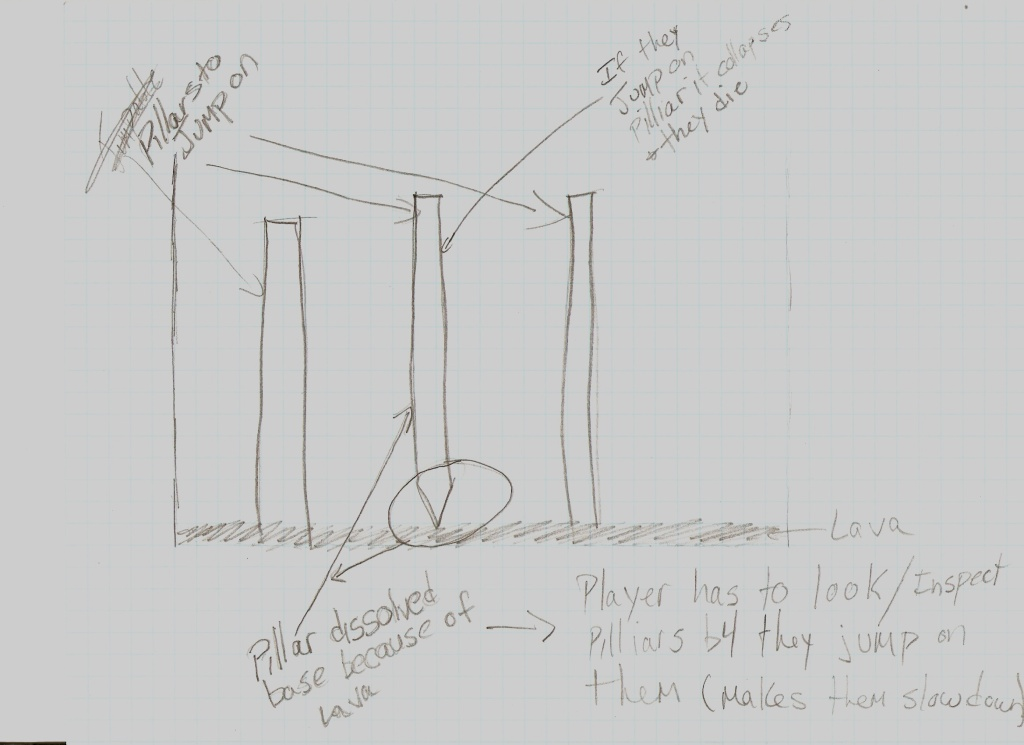 Pillars to
Jump on
If they
Jump on
Pilliar it collapses
+ they die
Lava
Pillar dissolved
base because of
lava
Player has to look/Inspect
Pilliars b4 they jump on
them (makes them slowdown)